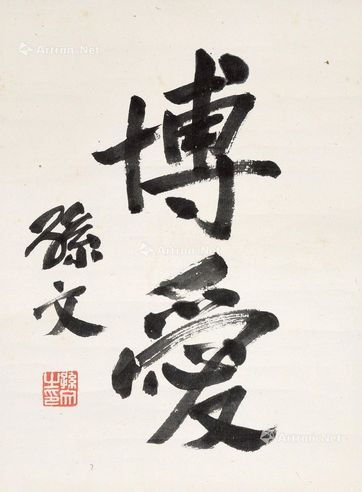 博愛
孫文
孫文之印
Artron.Net
Artron.Net
Artron.Net
Artron.Net